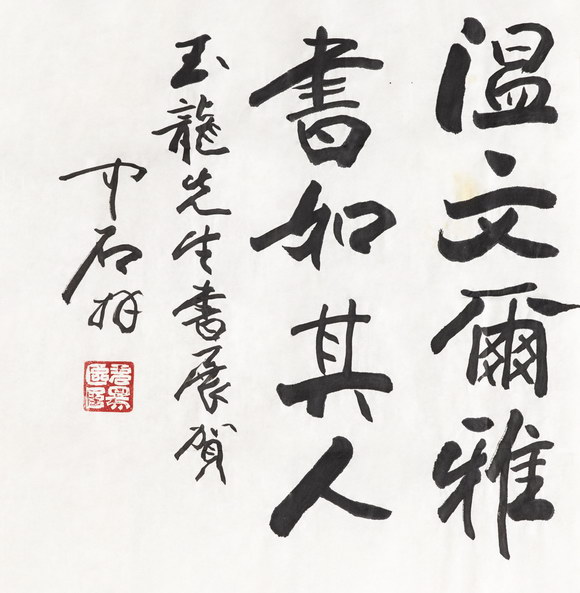 温文爾雅
書如其人
玉龍先生书展贺
中石拜